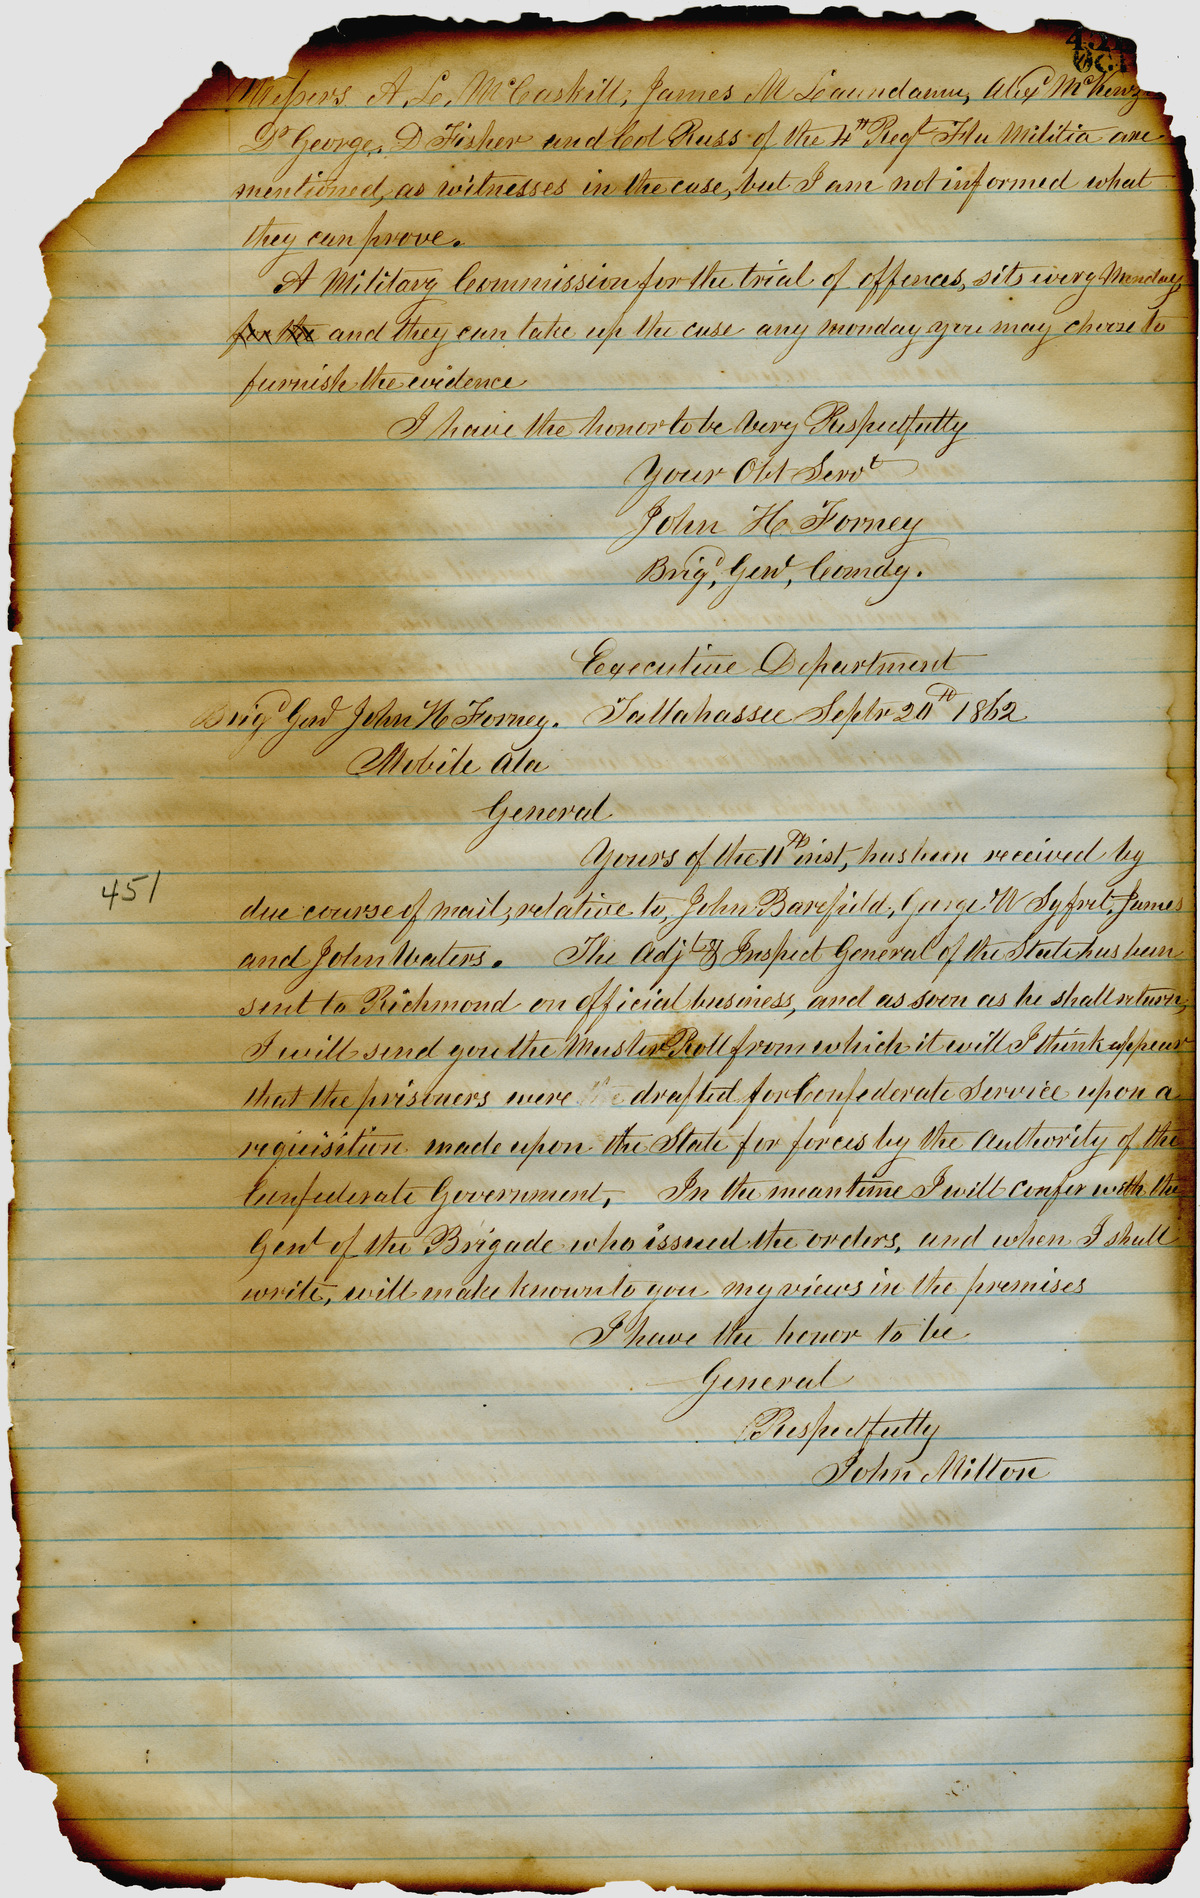 Messrs A, L, McCaskill, James M Landanum, Alexr McKenz
Dr George, D Fisher and Col Russ of the 4th Regt Fla Militia are
mentioned, as witnesses in the case, but I am not informed what
they can prove.
A Military Commission for the trial of offences, sits every Monday,
for the and they can take up the case any monday you may choose to
furnish the evidence
I have the honor to be Very Respectfully
Your Obt Servt
John H Forney
Brigd, Genl, Comdg.
Executive Department
Brigd Genl John H Forney. Tallahassee Septr 20th 1862
Mobile Ala
General
Yours of the 11th inst, has been received by
451
due course of mail, relative to, John Barefield, George W Syfret, James
and John Waters. The Adjt & Inspect General of the State has been
sent to Richmond on official business, and as soon as he shall return,
I will send you the Muster Roll from which it will I think appear
that the prisoners were drafted for Confederate Service upon a
requisition made upon the State for forces by the Authority of the
Confederate Government, In the meantime I will confer with the
Genl of the Brigade who issued the orders, and when I shall
write, will make known to you my views in the premises
I have the honor to be
General
Respectfully
John Milton